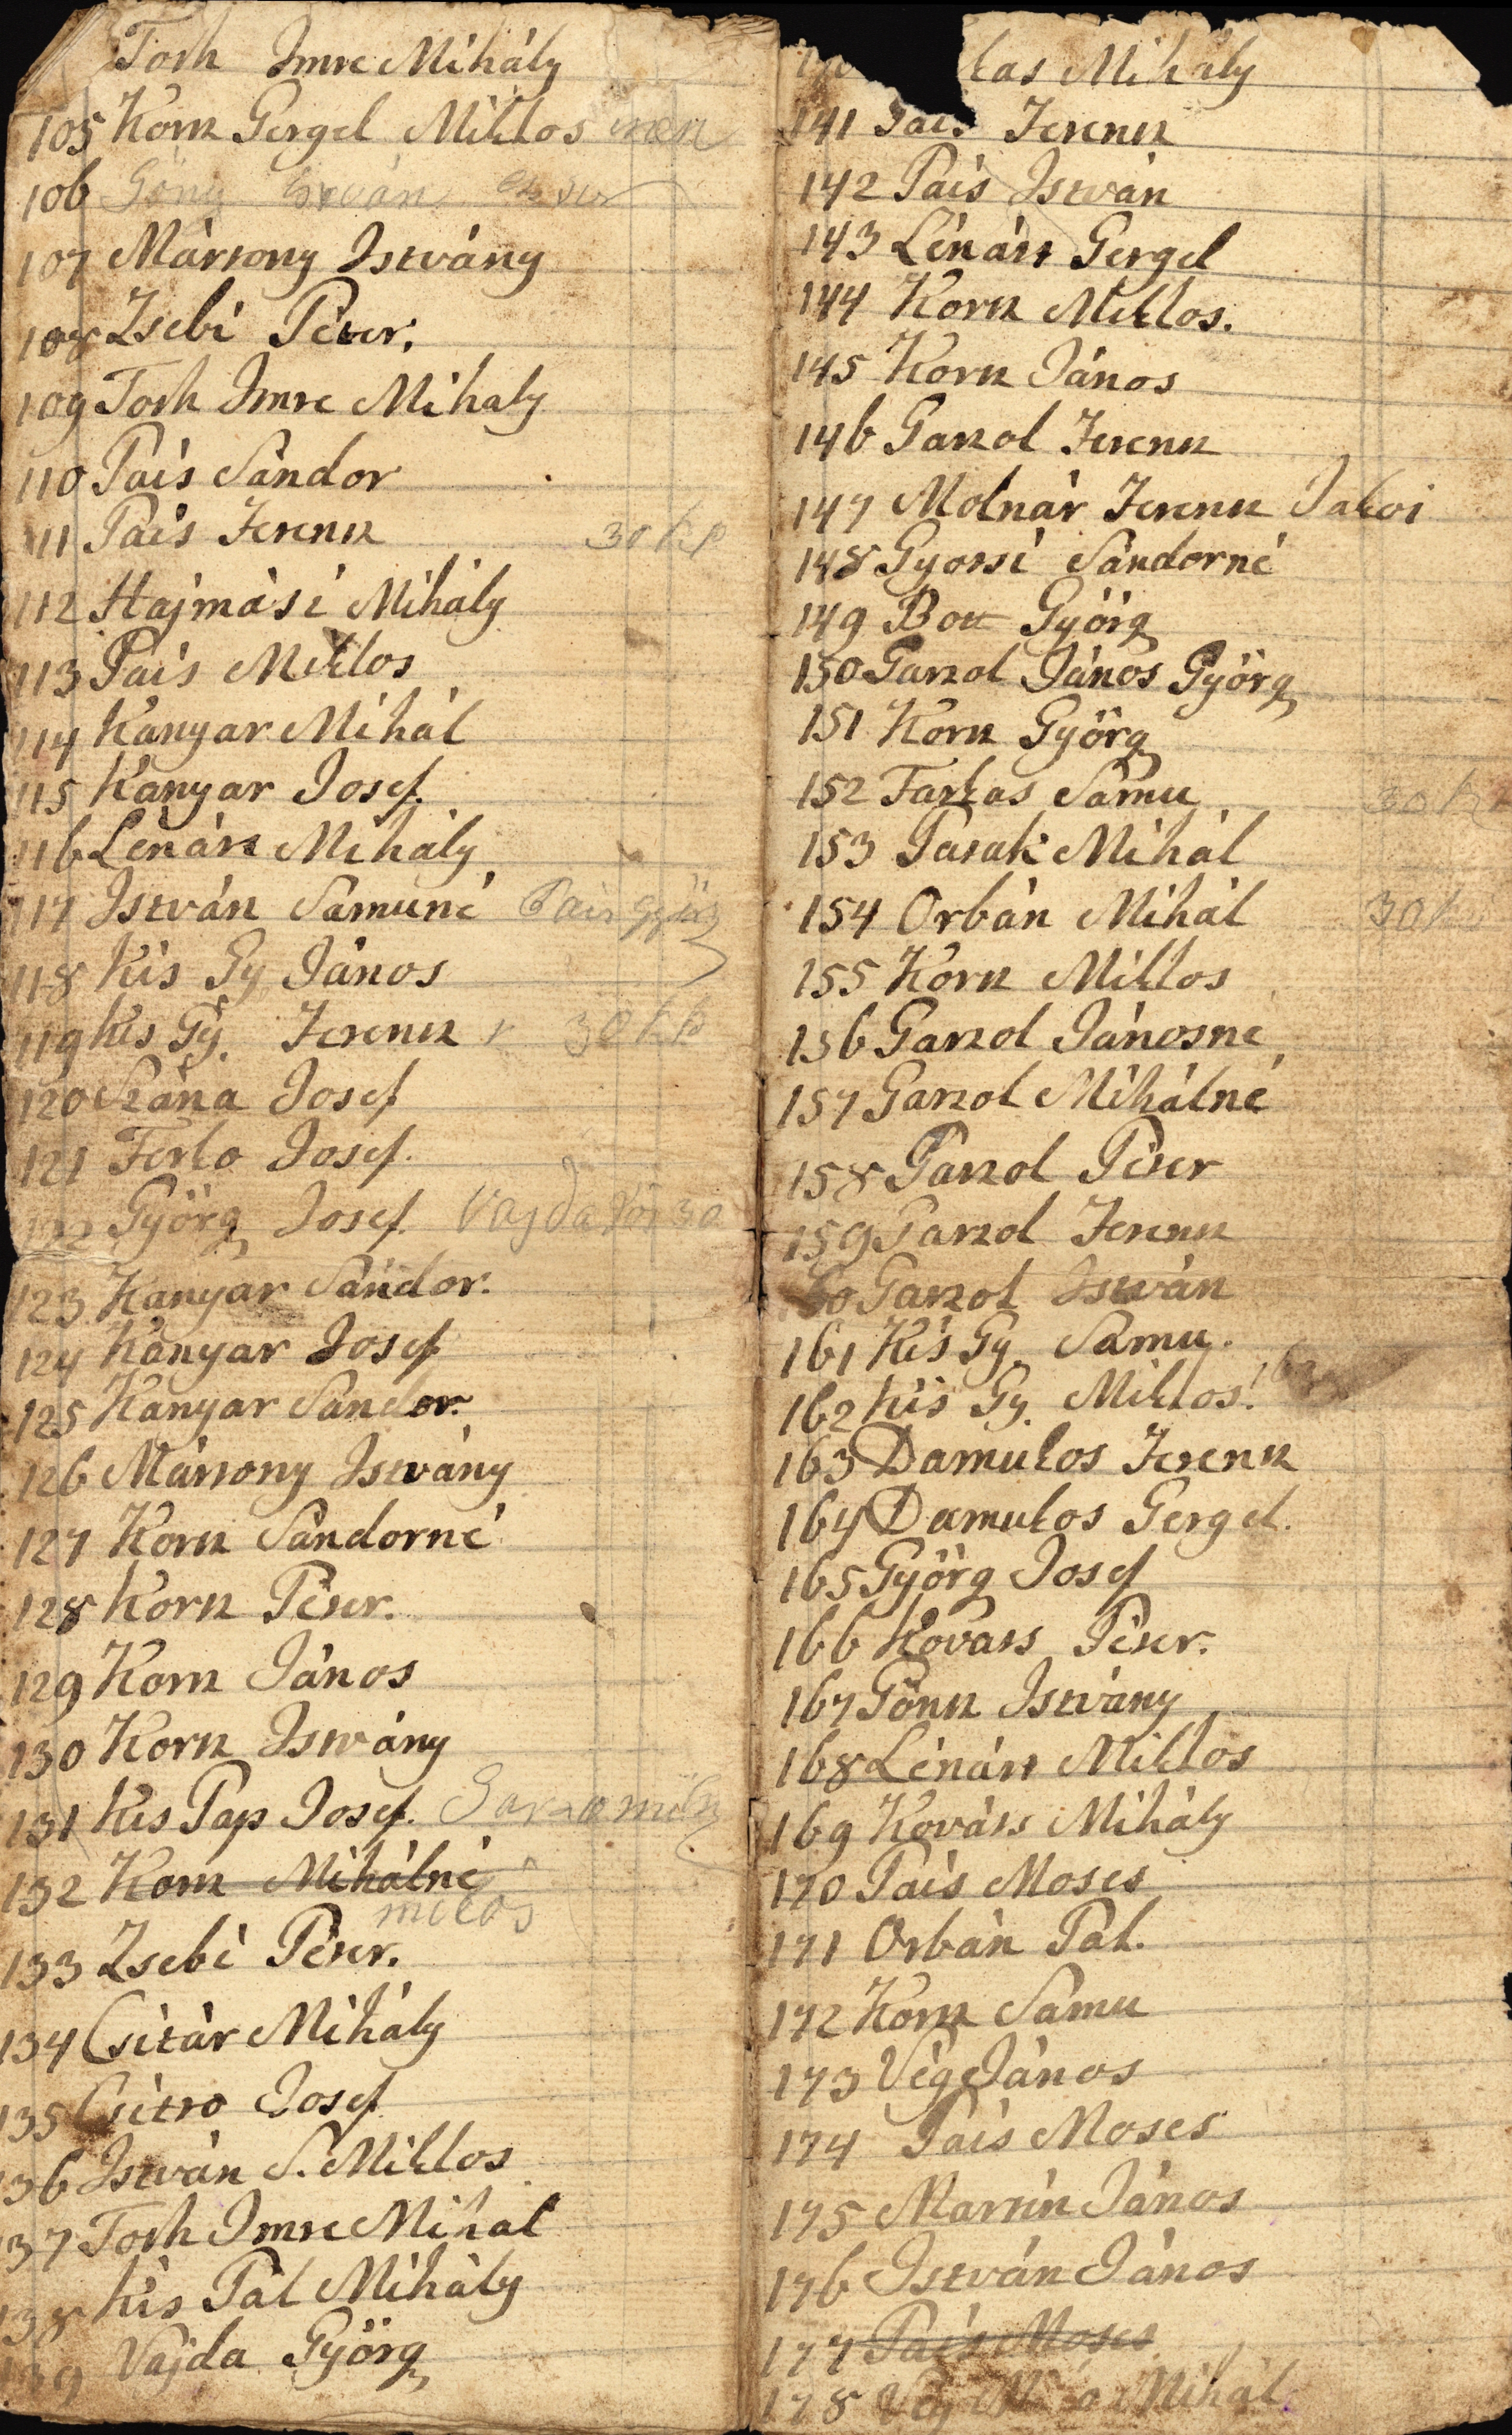 Toth Imre Mihály
105 Koncz Gergel Miklos
106 Göncz István
107 Mártony Istvány
108 Zsebi Péter.
109 Toth Imre Mihaly
110 Pais Sándor
111 Pais Ferencz 30 kr
112 Hajmási Mihály
113 Pais Miklos
114 Kanyar Mihál
115 Kanyar Josef.
116 Lénárt Mihály
117 István Sámuné Pais Györg
118 Kis Gy János
119 Kis Gy. Ferencz 30 kr
120 Szána Josef
121 Ferko Josef.
122 Györg Josef. Vajda
123 Kanyar Sándor.
124 Kanyar Josef
125 Kanyar Sandor.
126 Mártony Istvány
127 Koncz Sándorné
128 Koncz Péter.
129 Koncz János
130 Koncz Istvány
131 Kis Pap Josef.
132 Koncz Mihálné
miklos
133 Zsebi Péter.
134 Csitár Mihály
135 Csitro Josef
136 István S. Miklos
137 Toth Imre Mihal
138 Kis Pál Mihály
139 Vajda Györg
kas Mihály
141 Pais Ferencz
142 Pais István
143 Lénárt Gergel
144 Koncz Miklos.
145 Koncz János
146 Garzol Ferencz
147 Molnár Ferencz Jakoi
148 Gyorsi Sándorné
149 Bott Györg
150 Garzol János Györg
151 Koncz Györg
152 Farkas Sámu 30 kr
153 Pasak Mihál
154 Orbán Mihál 30 kr
155 Koncz Miklos
156 Garzol Jánosné
157 Garzol Mihálné
158 Garzol Péter
159 Garzol Ferencz
60 Garzol István
161 Kis Gy. Sámu.
162 Kis Gy. Miklos.
163 Damukos Ferencz
164 Damukos Gergel.
165 Györg Josef
166 Kovats Péter.
167 Göncz Istvány
168 Lénárt Miklos
169 Kováts Mihály
170 Pais Moses
171 Orbán Pál.
172 Koncz Sámu
173 Vég János
174 Pais Moses
175 Martin János
176 István János
177 Pais Moses
178 Vég Mihál